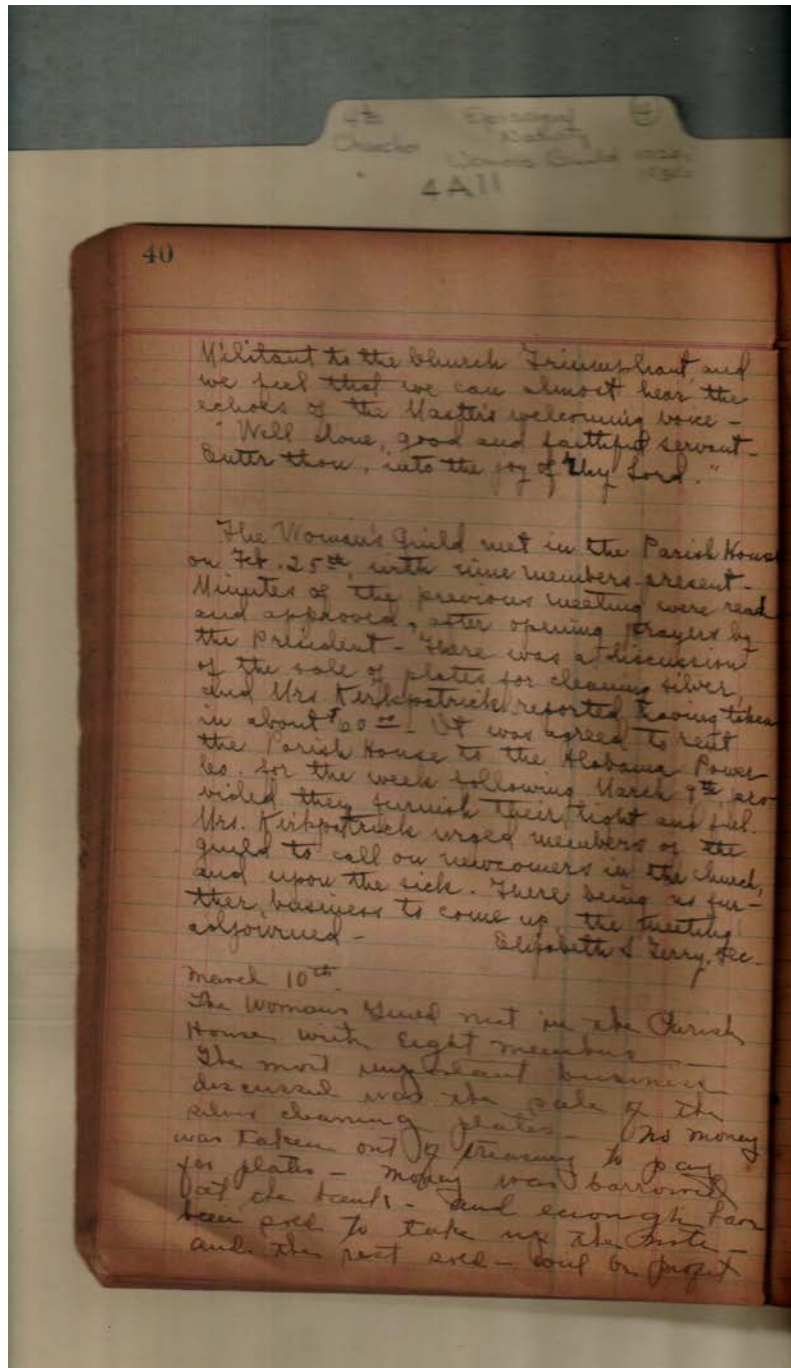 4th Episcopal
Character Nativity
Womens Guild
4A11
40
Militant to the Church Triumphant, and
we feel that we can almost hear the
echoes of the Master's welcoming voice -
"Well done, good and faithful servant -
Enter thou, into the joy of thy Lord."
The Woman's Guild met in the Parish House
on Feb. 25th, with nine members present -
Minutes of the previous meeting were read
and approved, after opening prayers by
the President - There was a discussion
of the sale of plates for cleaning silver,
and Mrs. Kirkpatrick reported having taken
in about $60.00 - It was agreed to rent
the Parish House to the Alabama Power
Co. for the week following March 9th, pro-
vided they furnish their light and fuel.
Mrs. Kirkpatrick urged members of the
guild to call on newcomers in the church,
and upon the sick. There being no fur-
ther, business to come up, the meeting
adjourned - Elizabeth S Terry, Sec.
March 10th.
The Womans Guild met in the Parish
House with Eight members
The most important business
discussed was the sale of the
silver cleaning plates - No money
was taken out of treasury to pay
for plates - money was borrowed
at the bank - and enough have
been sold to take up the note -
and the rest sold - will be profit